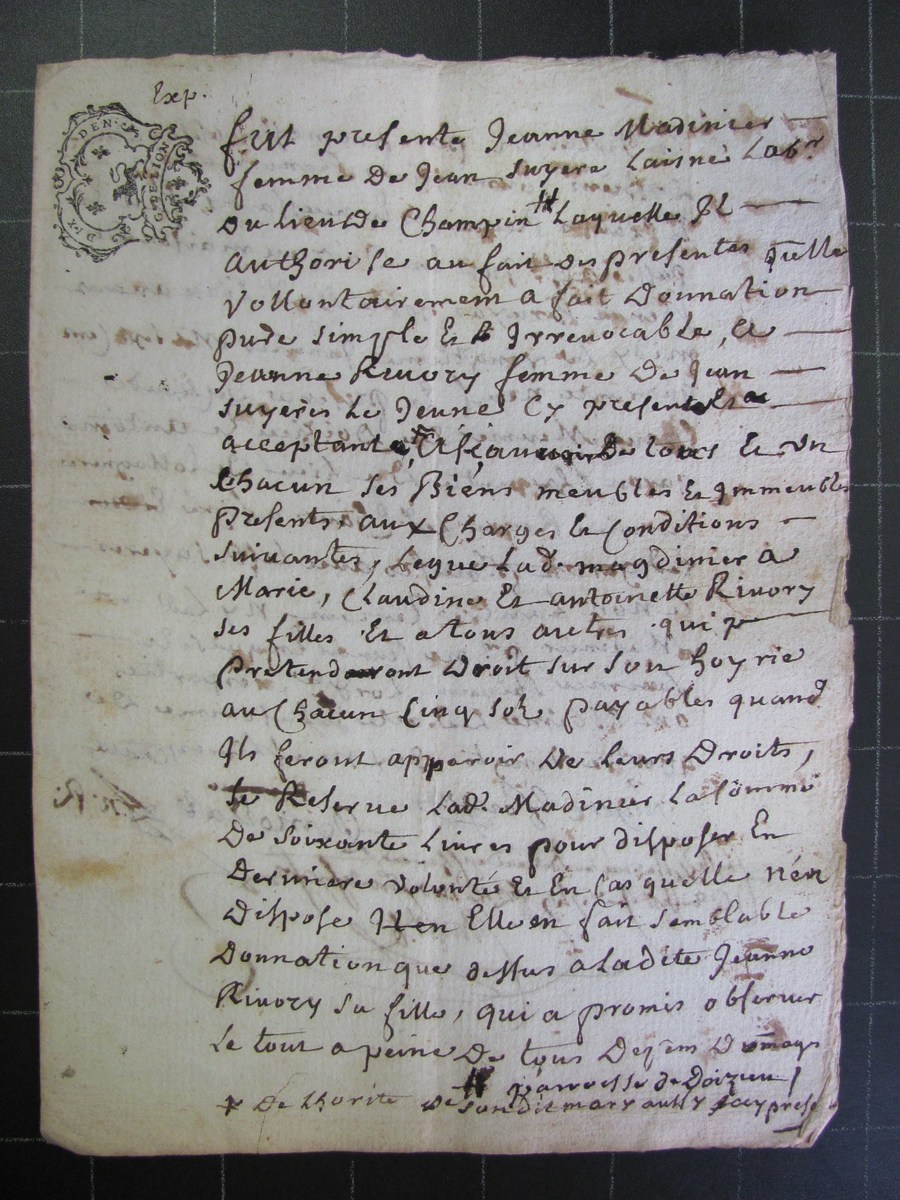 Exp.
DIX DEN. G. DE LION
fut presente Jeanne Madinier
femme de Jean Suyere Laisné Labr
du lieu de Champin # Laquelle Il
authorise au fait des presentes quelle
vollontairement a fait Donnation
pure simple et Irrevocable, a
Jeanne Rivory femme de Jean
suyeres Le Jeune Cy presente
acceptante, de tous et un
Chacun ses Biens meubles et Immeubles
Presents, aux Charges et Conditions
suivantes, legue Lad. magdinier a
Marie, Claudine Et antoinette Rivory
ses filles Et a tous autres qui
pretenderont Droit sur son hoyrie
au Chacun Cinq sol payables quand
Ils feront apparoir de leurs Droits,
se Reserve Lad. Madinier La somme
De soixante Livres pour disposer En
Derniere volonté Et En Cas quelle n'en
Dispose Elle en fait semblable
Donnation que dessus a Ladite Jeanne
Rivory sa fille, qui a promis observer
Le tout a peine De tous
# parroisse de Doizieu /
De son dit mary aussy Icy prese